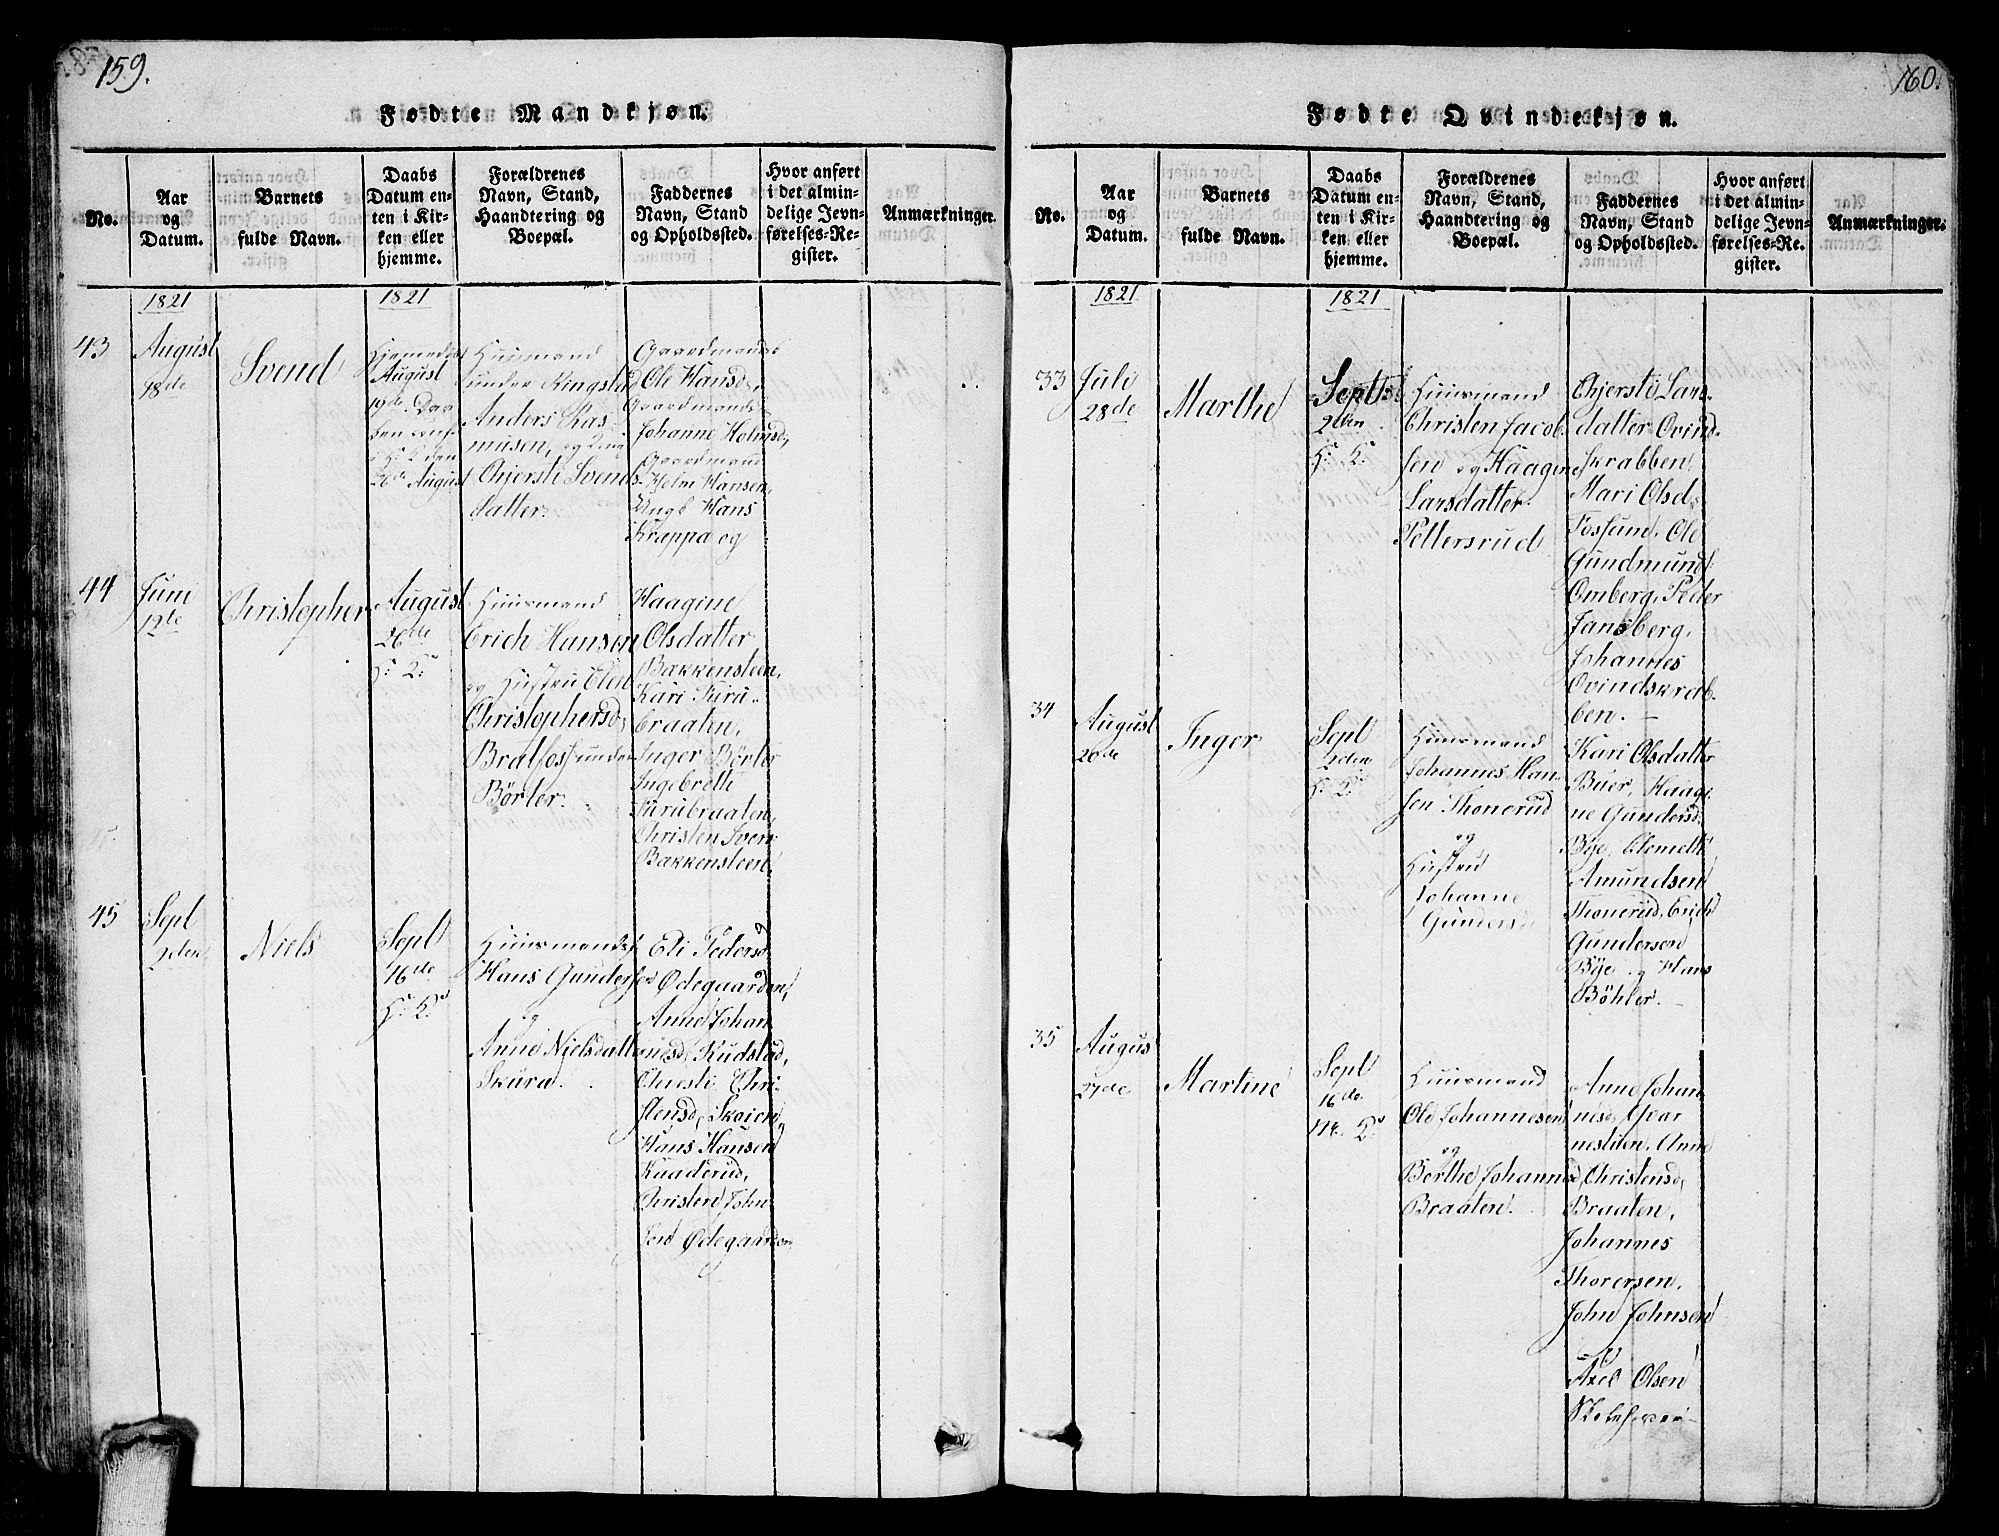 159.
Fødte Mandkjøn.
No.
Aar
og
Datum.
Barnets
fulde Navn.
Daabs
Datum en-
ten i Kir-
ken eller
hjemme.
Forældrenes
Navn, Stand,
Haandtering og
Boepæl.
Faddernes
Navn, Stand
og Opholdssted.
Hvor anført
i det almin-
delige Jevn-
førelses-Re-
gister.
Anmærkninger.
1821
1821
43
August
18de
Svend
Hjemedøbt
August
19de
26de August
Huusmand
under Ringstad
Anders Ras
musen, og
Chjersti Svends
datter.
Gaardmandes
Ole Hansd,
Gaardmands
Johanne Holmsd,
Gaardmand
Helm Hansen,
Ungk Hans
Krappa og
44
Juni
12te
Christopher
August
26de
H: K:
Huusmand
Erich Hansen
og Hustru Elen
Christophersd,
Bratfoss under
Börter.
Haagine
Olsdatter
Bakkensteen,
Kari Furu-
braatn,
Inger Börter
Ingebrett
Furubraaten,
Christen Svens
Bakkensteen
45
Sept
2den
Niels
Sept
16de
H: K:
Huusmandsf
Hans Gundersen
og
Anne Nielsdatt
Skura.
Eli Pedersd
Ødegaarden,
Anne Johan
nesd, Rudstad,
Chri-
stensd, Skoien,
Hans Hansen
Knaderud,
Christen John
sen Ødegaarden
160.
Fødte Qvindekjøn.
No.
Aar
og
Datum.
Barnets
fulde Navn.
Daabs
Datum en-
ten i Kir-
ken eller
hjemme.
Forældrenes
Navn, Stand,
Haandtering og
Boepæl.
Faddernes
Navn, Stand
og Opholdssted.
Hvor anført
i det almin-
delige Jevn-
førelses-Re-
gister.
Anmærkninger.
1821
1821
33
Juli
28de
Marthe
Sept:
2den
H: K:
Huusmand
Christen Jacob
sen og Haagine
Larsdatter
Pettersrud
Chjersti Lars
datter Qvind-
skrabben
Mari Olsd
Fossund, Ole
Gundmund
Omberg, Peder
Jansberg,
Johannes
Qvindskrab-
ben. -
34
August
20de
Inger
Sept
2den
H: K:
Huusmand
Johannes Han
sen Thonerud
og
Hustru
Johanne
Gundersd
Kari Olsdatter
Buer, Haagi-
ne Gundersd,
Bye, Clemett
Amundsen
Thonerud, Erich
Gundersen
Bye og Hans
Böhler. -
35
Augus
27de
Martine
Sept
16de
K:
Huusmand
Ole Johannesen
og
Berthe Johannesd
Braaten.
Anne Johan
nesd, Gear
nestiden, Anne
Christensd,
Braaten,
Johannes
Thorersen,
John Johnsen
og
Axel Olsen